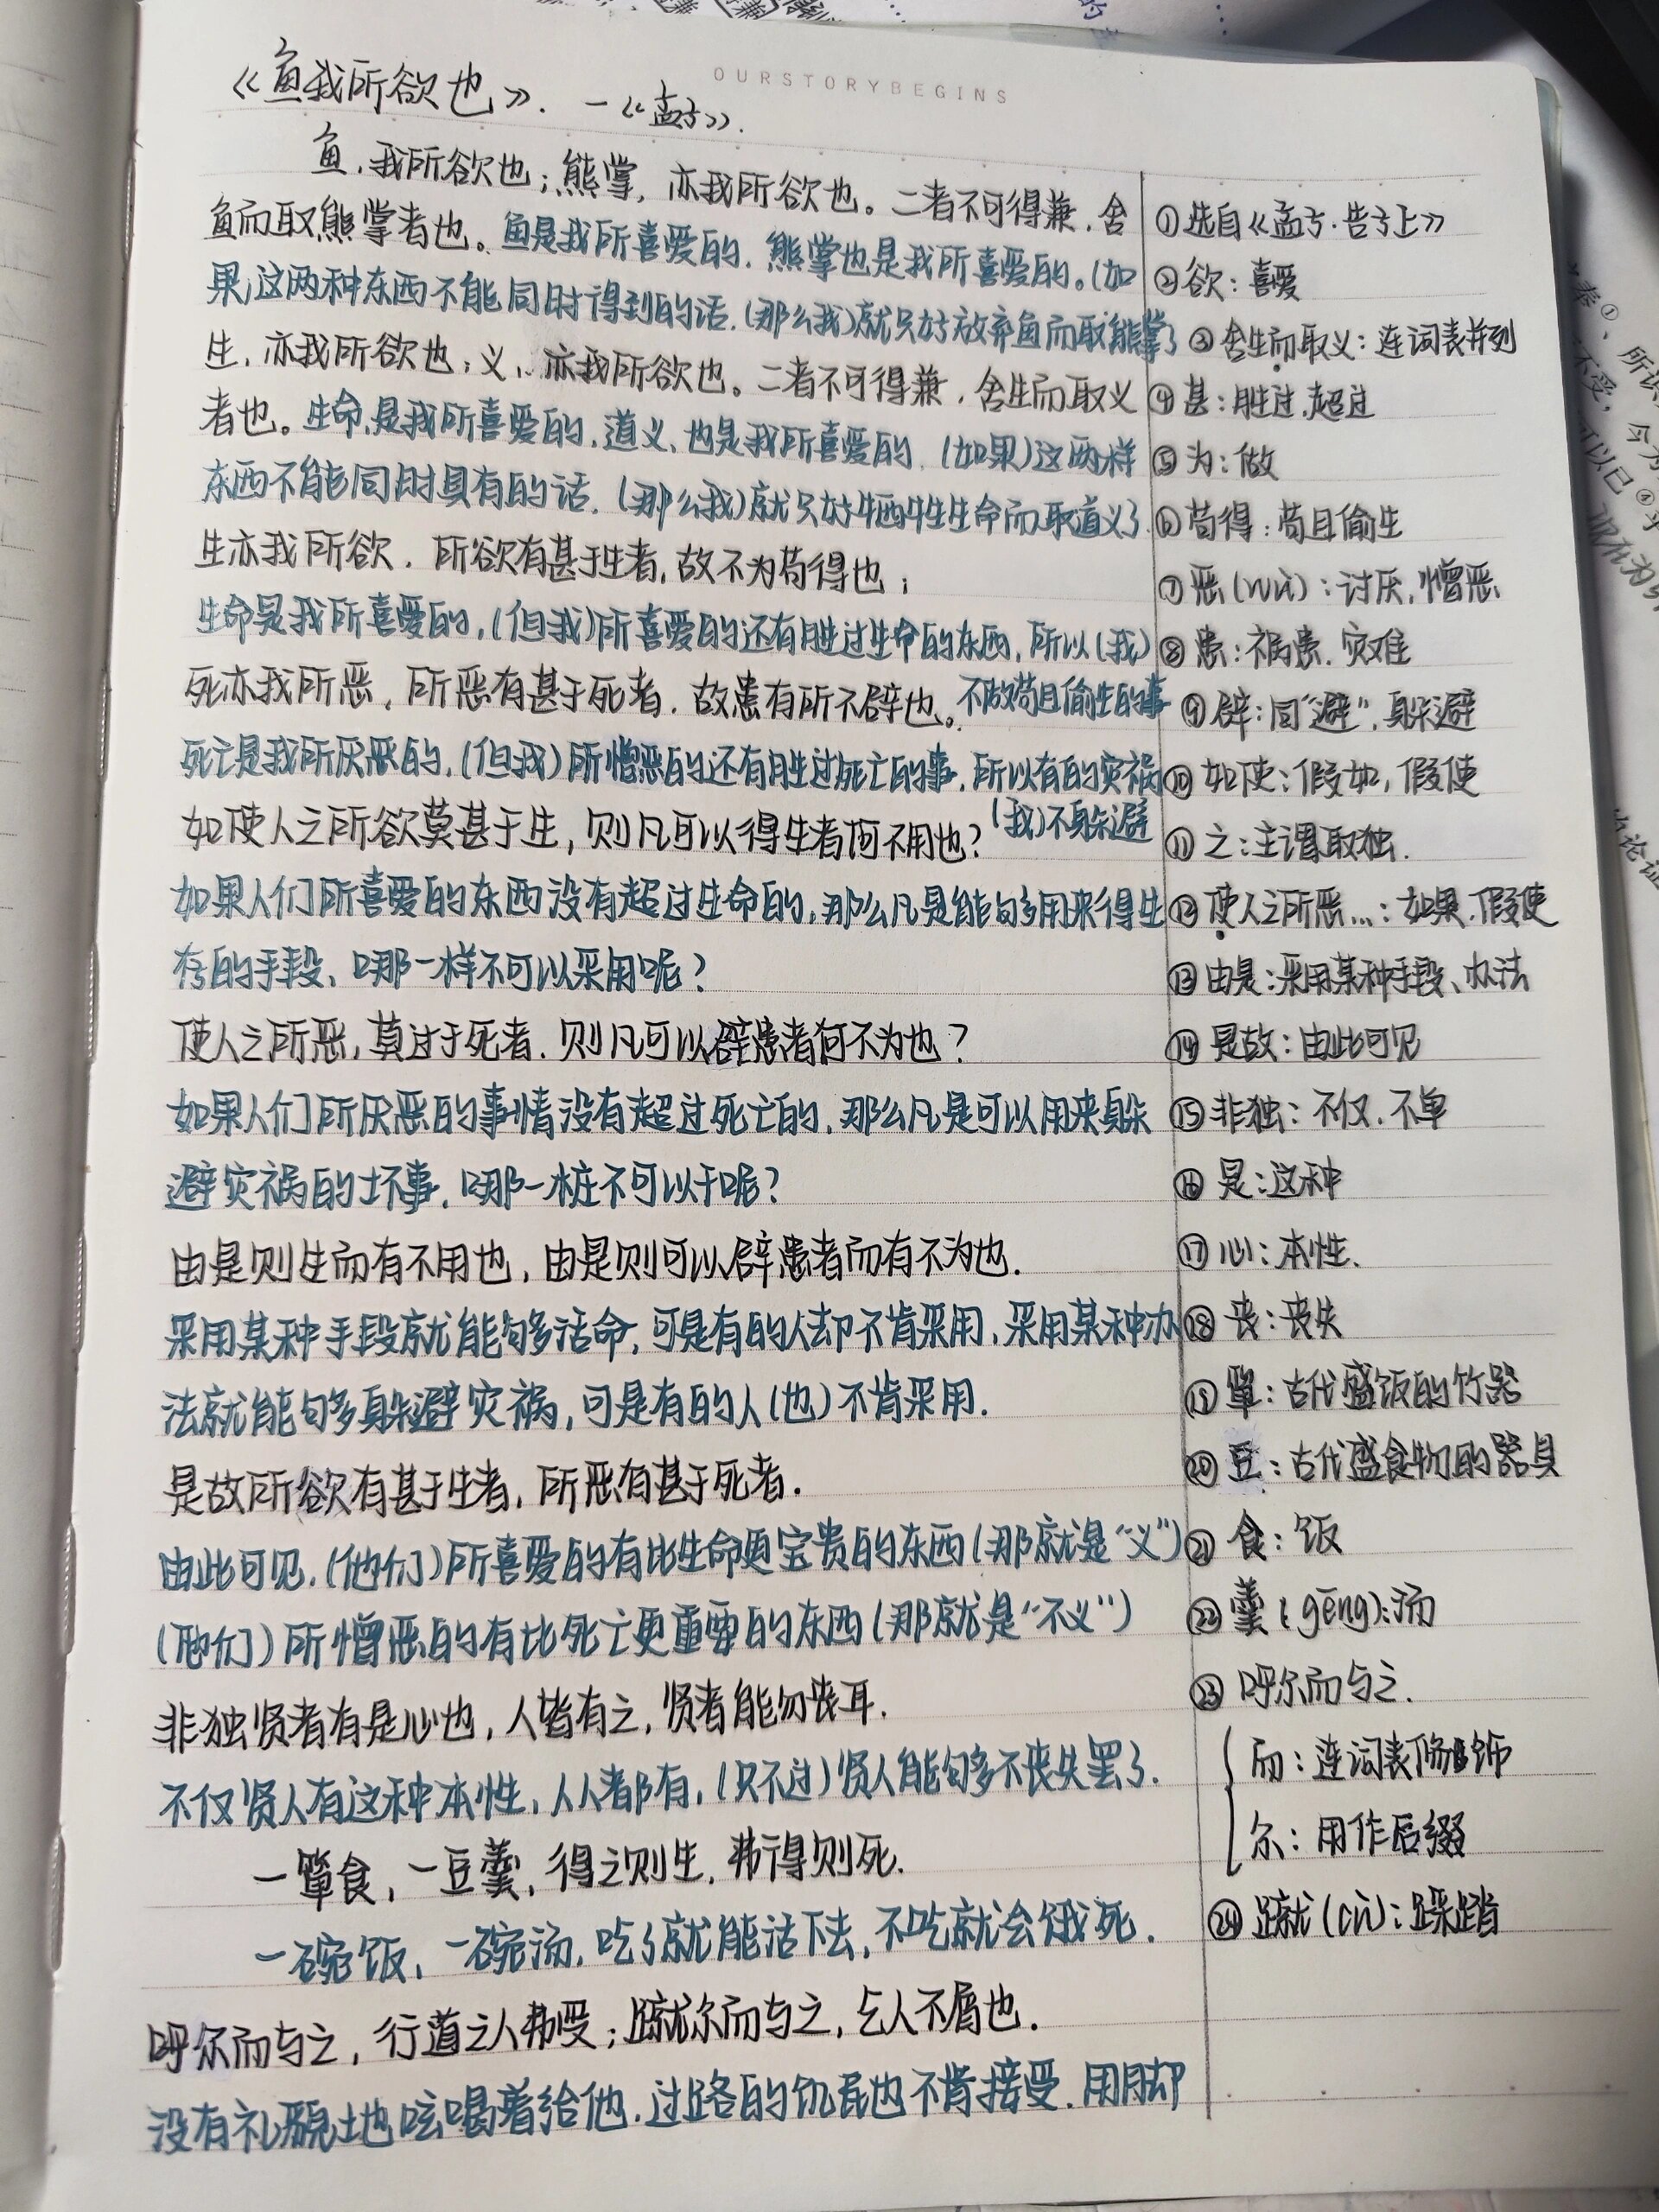 OURSTORYBEGINS
《鱼我所欲也》. —《孟子》.
鱼,我所欲也;熊掌,亦我所欲也。二者不可得兼,舍
鱼而取熊掌者也。鱼是我所喜爱的,熊掌也是我所喜爱的。(如
果)这两种东西不能同时得到的话,(那么我)就只好放弃鱼而取熊掌了
生,亦我所欲也;义,亦我所欲也。二者不可得兼,舍生而取义
者也。生命,是我所喜爱的,道义,也是我所喜爱的,(如果)这两样
东西不能同时具有的话,(那么我)就只好牺牲生命而取道义了.
生亦我所欲,所欲有甚于生者,故不为苟得也;
生命是我所喜爱的,(但我)所喜爱的还有胜过生命的东西,所以(我)
死亦我所恶,所恶有甚于死者,故患有所不辟也。不做苟且偷生的事
死亡是我所厌恶的,(但我)所憎恶的还有胜过死亡的事,所以有的灾祸
如使人之所欲莫甚于生,则凡可以得生者何不用也?(我)不躲避
如果人们所喜爱的东西没有超过生命的,那么凡是能够用来得生
存的手段、哪一样不可以采用呢?
使人之所恶,莫过于死者,则凡可以辟患者何不为也?
如果人们所厌恶的事情没有超过死亡的,那么凡是可以用来躲
避灾祸的坏事,哪一桩不可以干呢?
由是则生而有不用也,由是则可以辟患者而有不为也.
采用某种手段就能够活命,可是有的人却不肯采用,采用某种办
法就能够躲避灾祸,可是有的人(也)不肯采用.
是故所欲有甚于生者,所恶有甚于死者.
由此可见,(他们)所喜爱的有比生命更宝贵的东西(那就是“义”)
(他们)所憎恶的有比死亡更重要的东西(那就是“不义”)
非独贤者有是心也,人皆有之,贤者能勿丧耳.
不仅贤人有这种本性,人人都有,(只不过)贤人能够不丧失罢了.
一箪食,一豆羹,得之则生,弗得则死.
一碗饭、一碗汤,吃了就能活下去,不吃就会饿死.
呼尔而与之,行道之人弗受;蹴尔而与之,乞人不屑也.
没有礼貌地吆喝着给他,过路的饥民也不肯接受.用脚
①选自《孟子·告子上》
②欲:喜爱
③舍生而取义:连词表并列
④甚:胜过,超过
⑤为:做
⑥苟得:苟且偷生
⑦恶(wù):讨厌,憎恶
⑧患:祸患,灾难
⑨辟:同“避”,躲避
⑩如使:假如,假使
⑪之:主谓取独.
⑫使人之所恶...:如果,假使
⑬由是:采用某种手段、办法
⑭是故:由此可见
⑮非独:不仅,不单
⑯是:这种
⑰心:本性.
⑱丧:丧失
⑲箪:古代盛饭的竹器
⑳豆:古代盛食物的器具
㉑食:饭
㉒羹(gēng):汤
㉓呼尔而与之.
而:连词表修饰
尔:用作后缀
㉔蹴(cù):踩踏